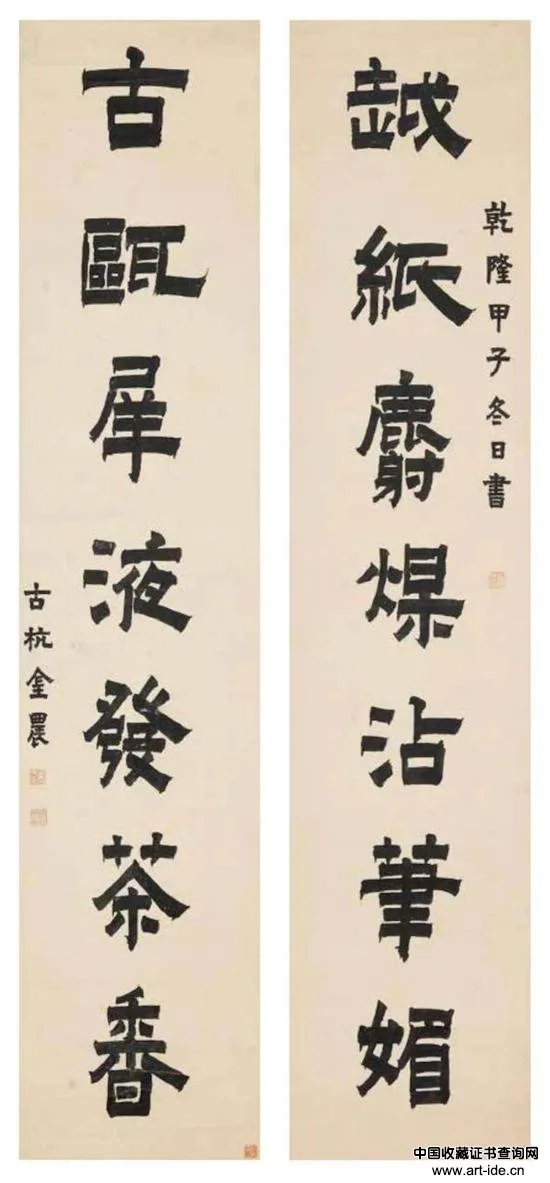 乾隆甲子冬日書
越紙麝煤沾筆媚
古甌犀液發茶香
古杭金農
中国收藏证书查询网
www.art-ide.cn